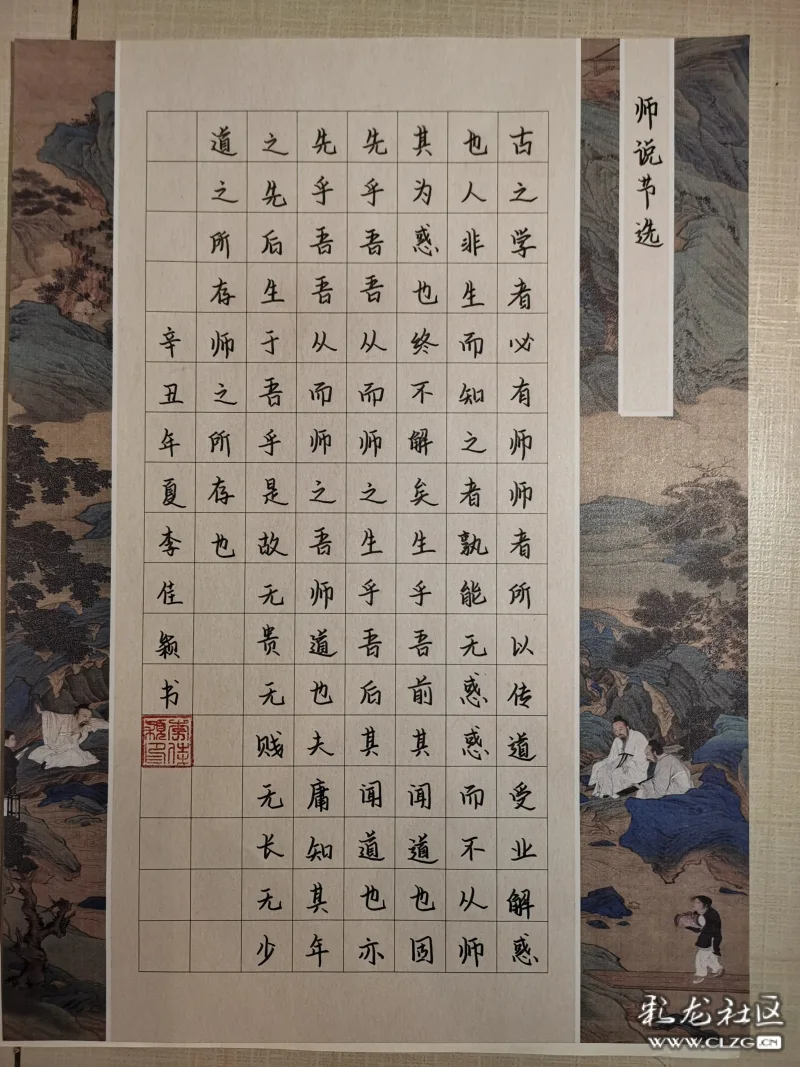 师说节选
古之学者必有师师者所以传道受业解惑
也人非生而知之者孰能无惑惑而不从师
其为惑也终不解矣生乎吾前其闻道也固
先乎吾吾从而师之生乎吾后其闻道也亦
先乎吾吾从而师之吾师道也夫庸知其年
之先后生于吾乎是故无贵无贱无长无少
道之所存师之所存也
辛丑年夏李佳颖书
李佳颖印
彩龙社区
WWW.CLZG.CN